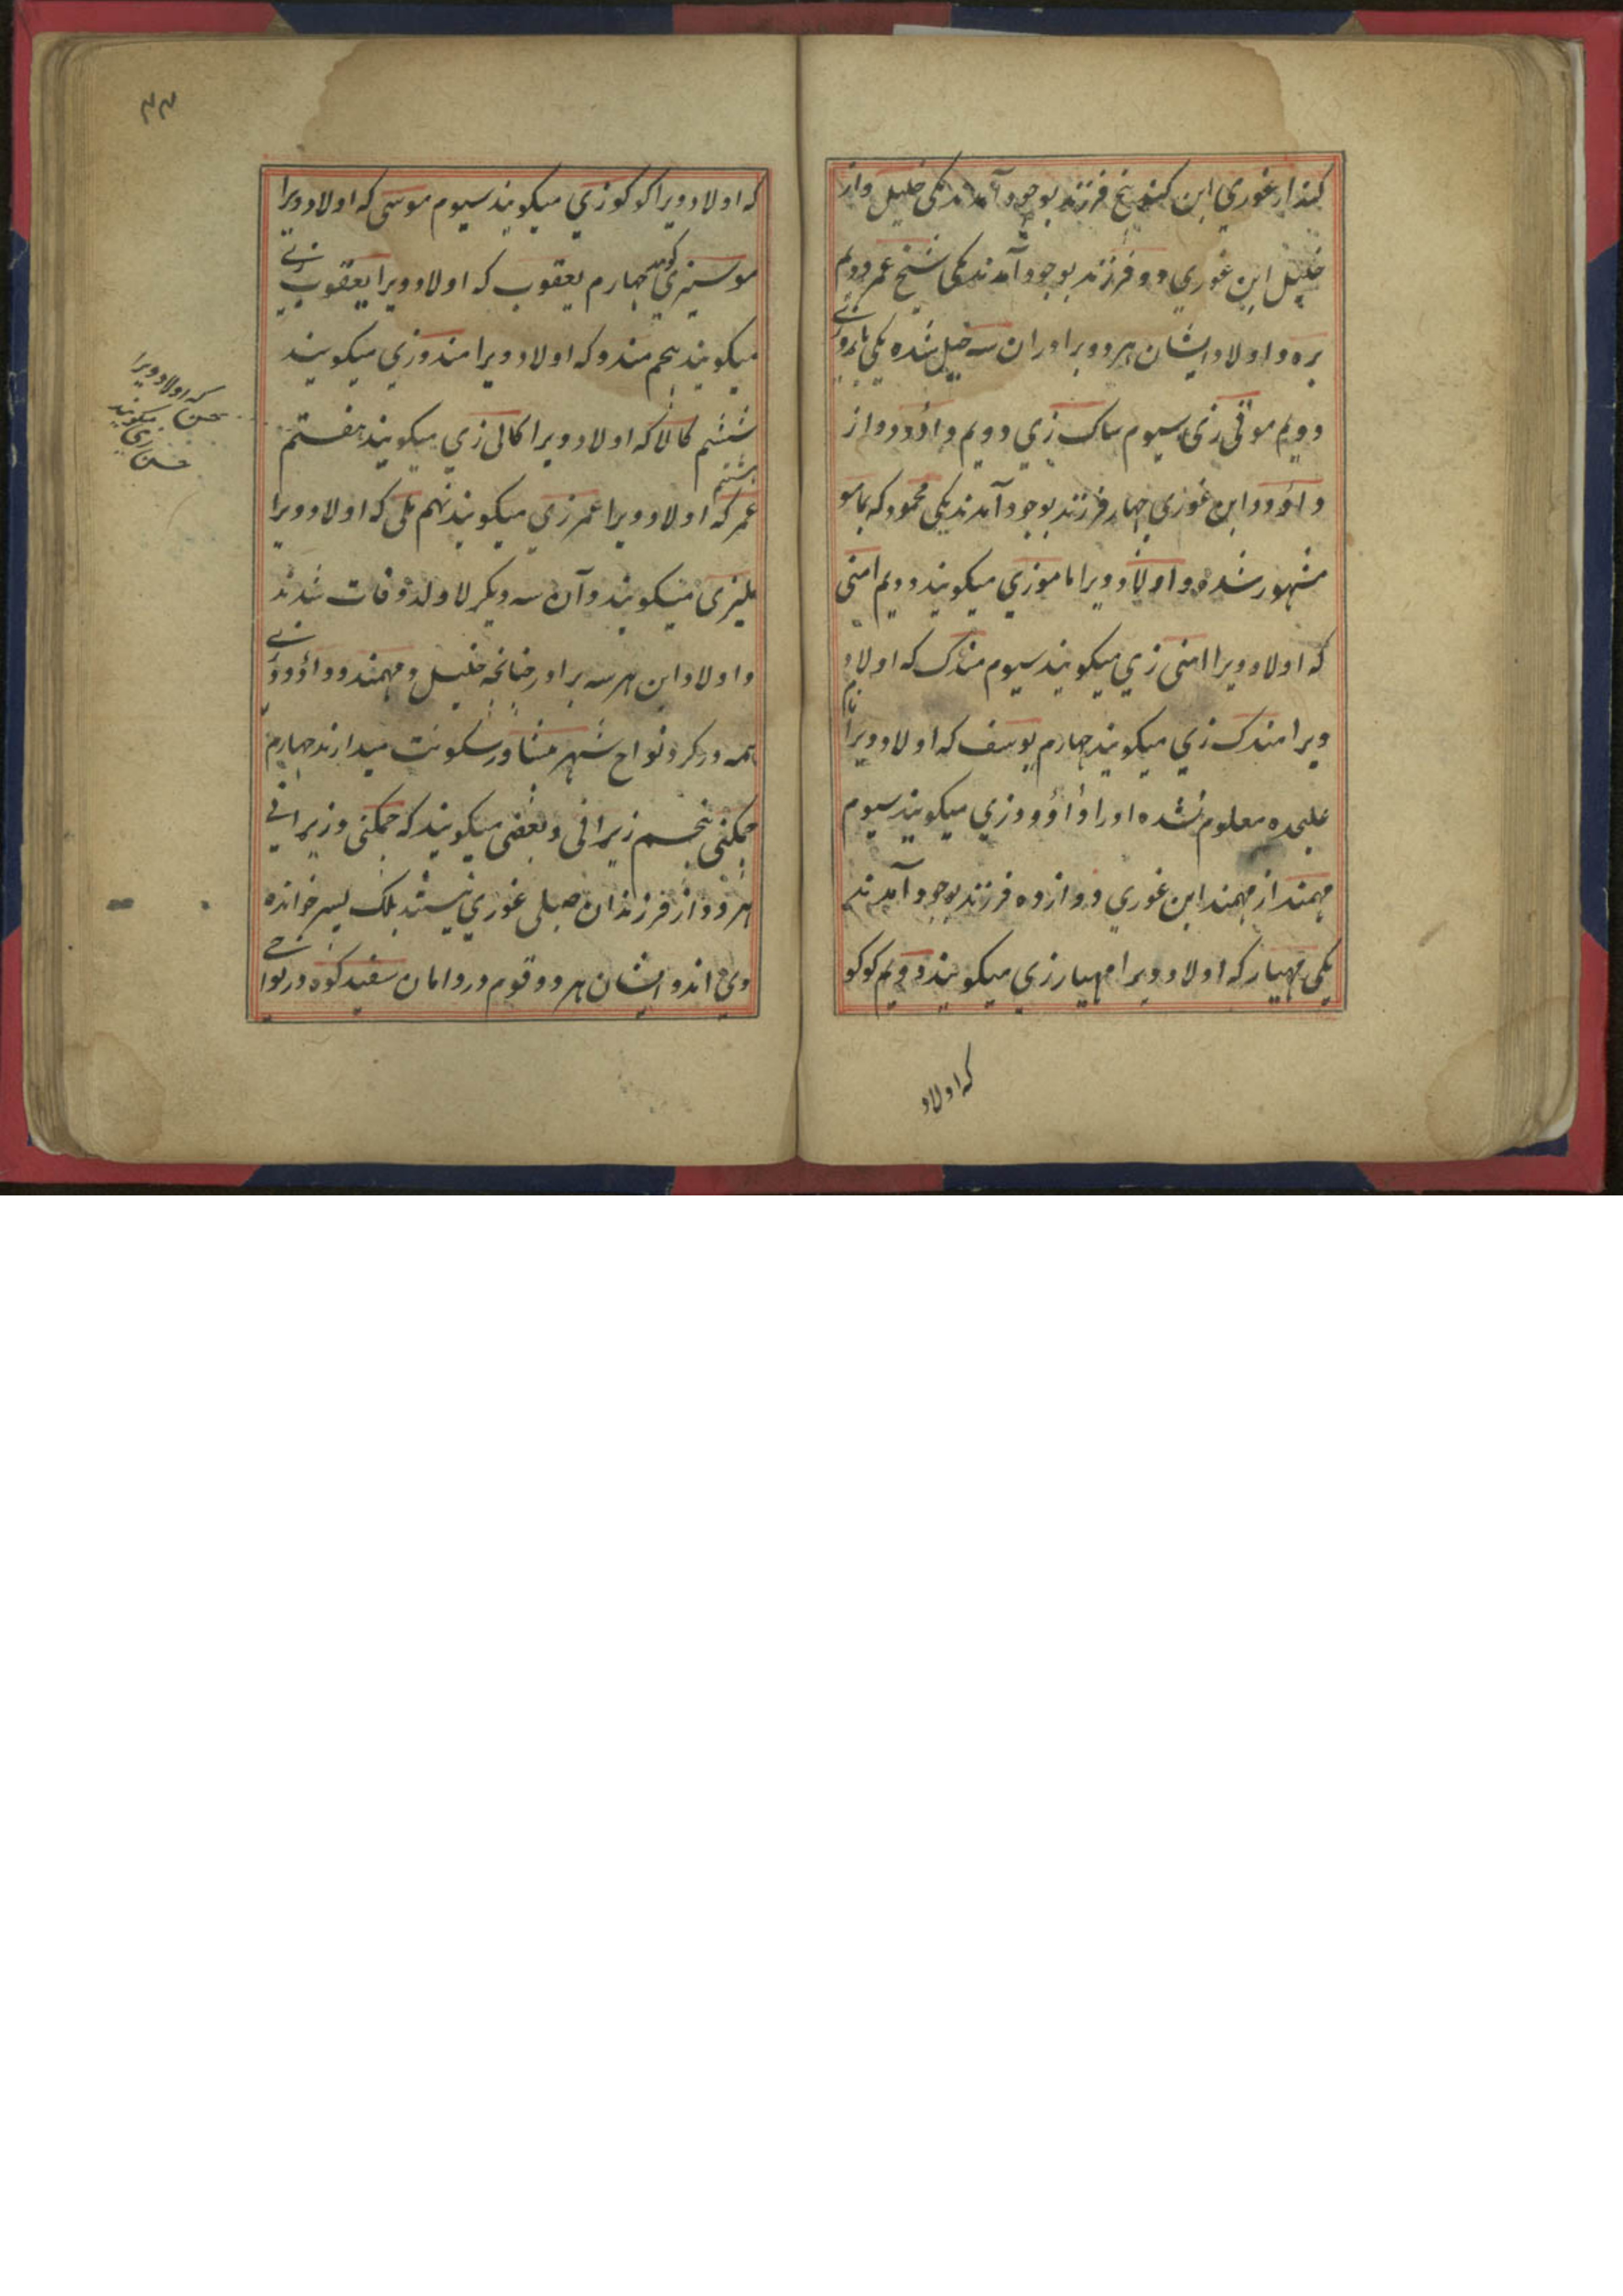 کند از غوری ابن کند پنج فرزند بوجود آمدند یکی خلیل و از
خلیل ابن غوری دو فرزند بوجود آمدند یکی شیخ عمر دویم
بره و اولاد ایشان هر دو برادران سه خیل شده یکی باروزی
دویم موقی زی سیوم ساک زی دویم داؤد و از
داؤد ابن غوری چهار فرزند بوجود آمدند یکی محمود که بمامو
مشهور شده و اولاد ویرا مامو زی میکویند دویم امنی
که اولاد ویرا امنی زی میکویند سیوم مندک که اولاد
ویرا مندک زی میکویند چهارم یوسف که اولاد ویرا نام
علیحده معلوم نشده او را داؤد زی میکویند سیوم
مهمند از مهمند ابن غوری دوازده فرزند بوجود آمدند
یکی مهیار که اولاد ویرا مهیار زی میکویند دویم کوکو
که اولاد
۴۴
که اولاد ویرا کوکو زی میکویند سیوم موسی که اولاد ویرا
موسیزی کویند چهارم یعقوب که اولاد ویرا یعقوب زی
میکویند پنجم مندو که اولاد ویرا مندو زی میکویند
ششم کالا که اولاد ویرا کالی زی میکویند هفتم
حسن که اولاد ویرا
حسن زی میکویند
هشتم
عمر که اولاد ویرا عمر زی میکویند نهم ملی که اولاد ویرا
ملیزی میکویند و آن سه دیکر لاولد وفات شدند
و اولاد این هر سه برادر چنانچه خلیل و مهمند و داؤد زی
همه در کرد و نواح شهر پشاور سکونت میدارند چهارم
چمکنی پنجم زیرانی و بعضی میکویند که چمکنی و زیرانی
هر دو از فرزندان صلبی غوری نیستند بلک پسر خوانده
وی اند و ایشان هر دو قوم در دامان سفید کوه در نواحی